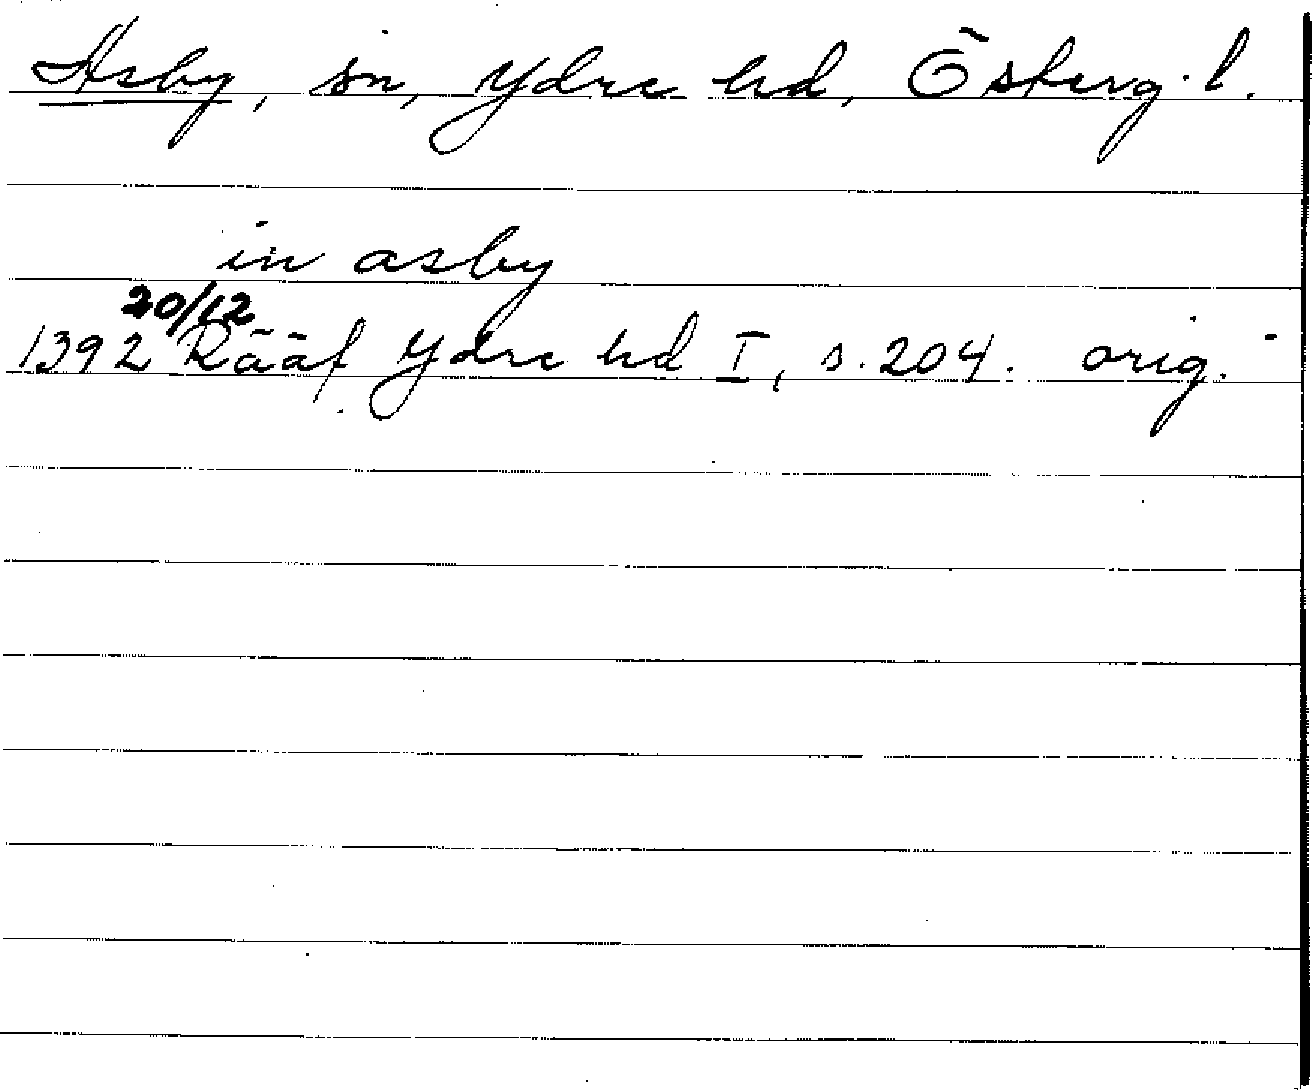 Asby, sn, Ydre hd, Österg. l.
in asby
20/12
1392 Rääf Ydre hd I, s. 204. orig.